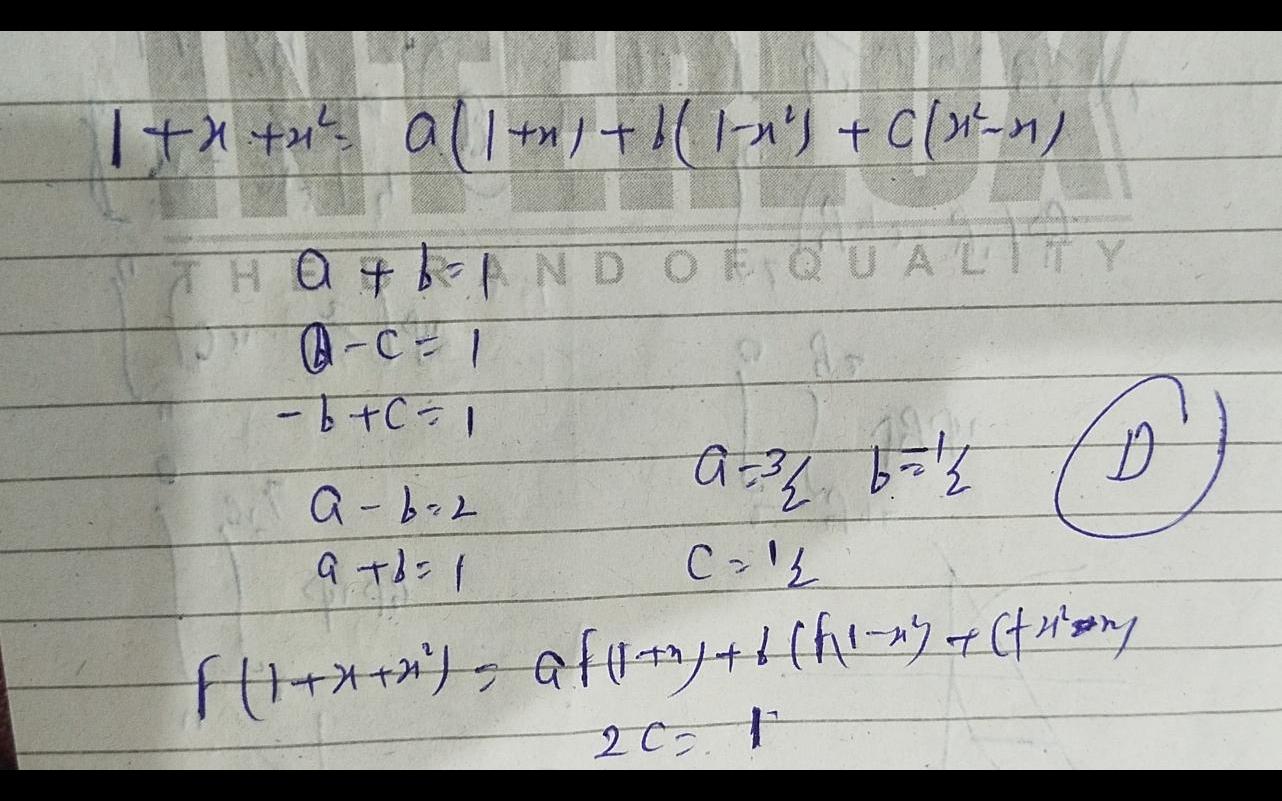 INTERLUX
1+x+x²= a(1+x)+b(1-x²)+c(x²-x)
THE BRAND OF QUALITY
a+b=1
a-c=1
-b+c=1
a=3/2 b=-1/2 D
a-b=2
a+b=1 c=1/2
f(1+x+x²)= af(1+x)+b(f(1-x²)+cf x²-x)
2c= 1